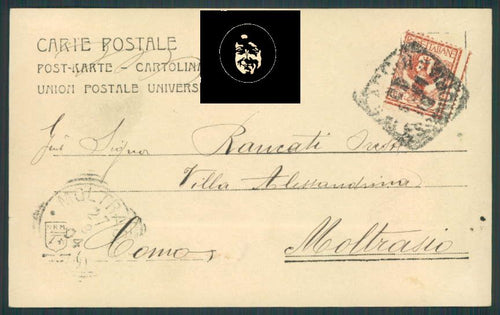 CARTE POSTALE
POST-KARTE - CARTOLINA
UNION POSTALE UNIVERS
ITALIANE
Rancati
Villa Alessandrina
Como
Moltrasio
MOLTRA